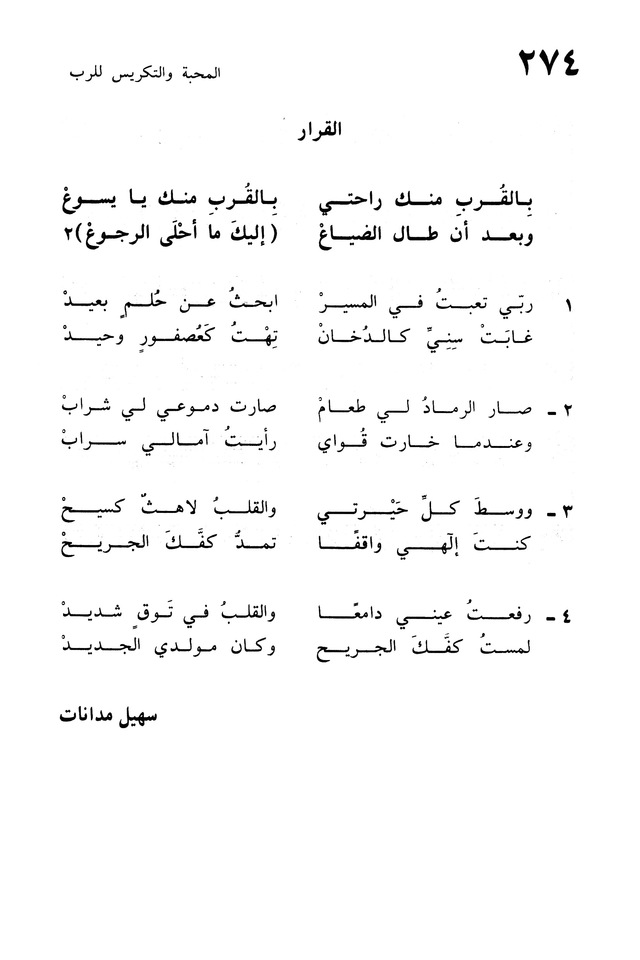 ٢٧٤
المحبة والتكريس للرب
القرار
بِالقُربِ منك راحتي بِالقُربِ منك يا يسوعْ
وبعد أن طال الضياعْ (إليكَ ما أحْلَى الرجوعْ)٢
١ ربّي تعبتُ في المسيرْ ابحثُ عن حُلمٍ بعيدْ
غابَتْ سِنِيِّ كالدُخانْ تِهْتُ كَعُصفورٍ وحيدْ
٢ - صار الرمادُ لي طعامْ صارت دموعي لي شرابْ
وعندما خارت قُواي رأيتُ آمالي سرابْ
٣ - ووسطَ كلِّ حَيْرتي والقلبُ لاهثٌ كسيحْ
كنتَ إلٓهي واقفًا تمدُّ كفَّكَ الجريحْ
٤ - رفعتُ عيني دامعًا والقلبُ في تَوقٍ شديدْ
لمستُ كفَّكَ الجريح وكان مولدي الجديدْ
سهيل مدانات